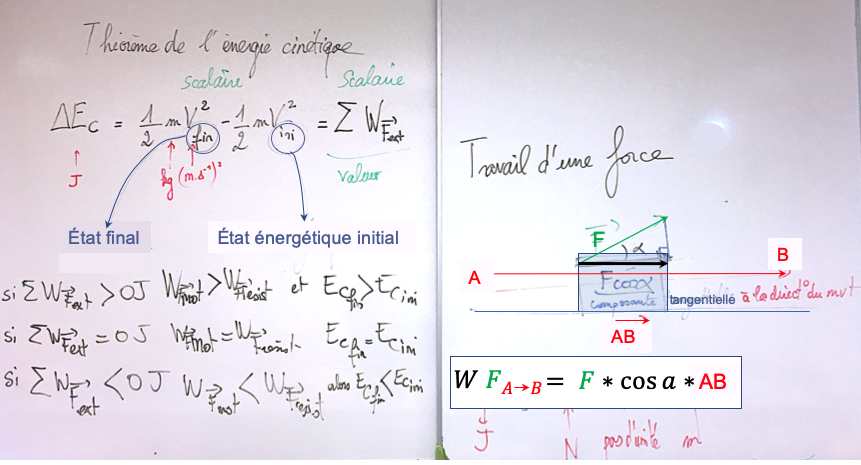 Théorème de l'énergie cinétique
scalaire
Scalaire
ΔEc = 1/2 mV²fin - 1/2 mV²ini = Σ W F⃗ext
J
kg (m.s⁻¹)²
valeur
État final
État énergétique initial
si ΣW F⃗ext > 0J W F⃗mot > W F⃗résist et Ec fin > Ec ini
si ΣW F⃗ext = 0J W F⃗mot = W F⃗résist. Ec fin = Ec ini
si ΣW F⃗ext < 0J W F⃗mot < W F⃗resist alors Ec fin < Ec ini
Travail d'une force
F⃗
α
A
B
F cos α
composante
tangentielle à la direct° du mvt
AB
W F A→B = F * cos a * AB
J
N pas d'unité m